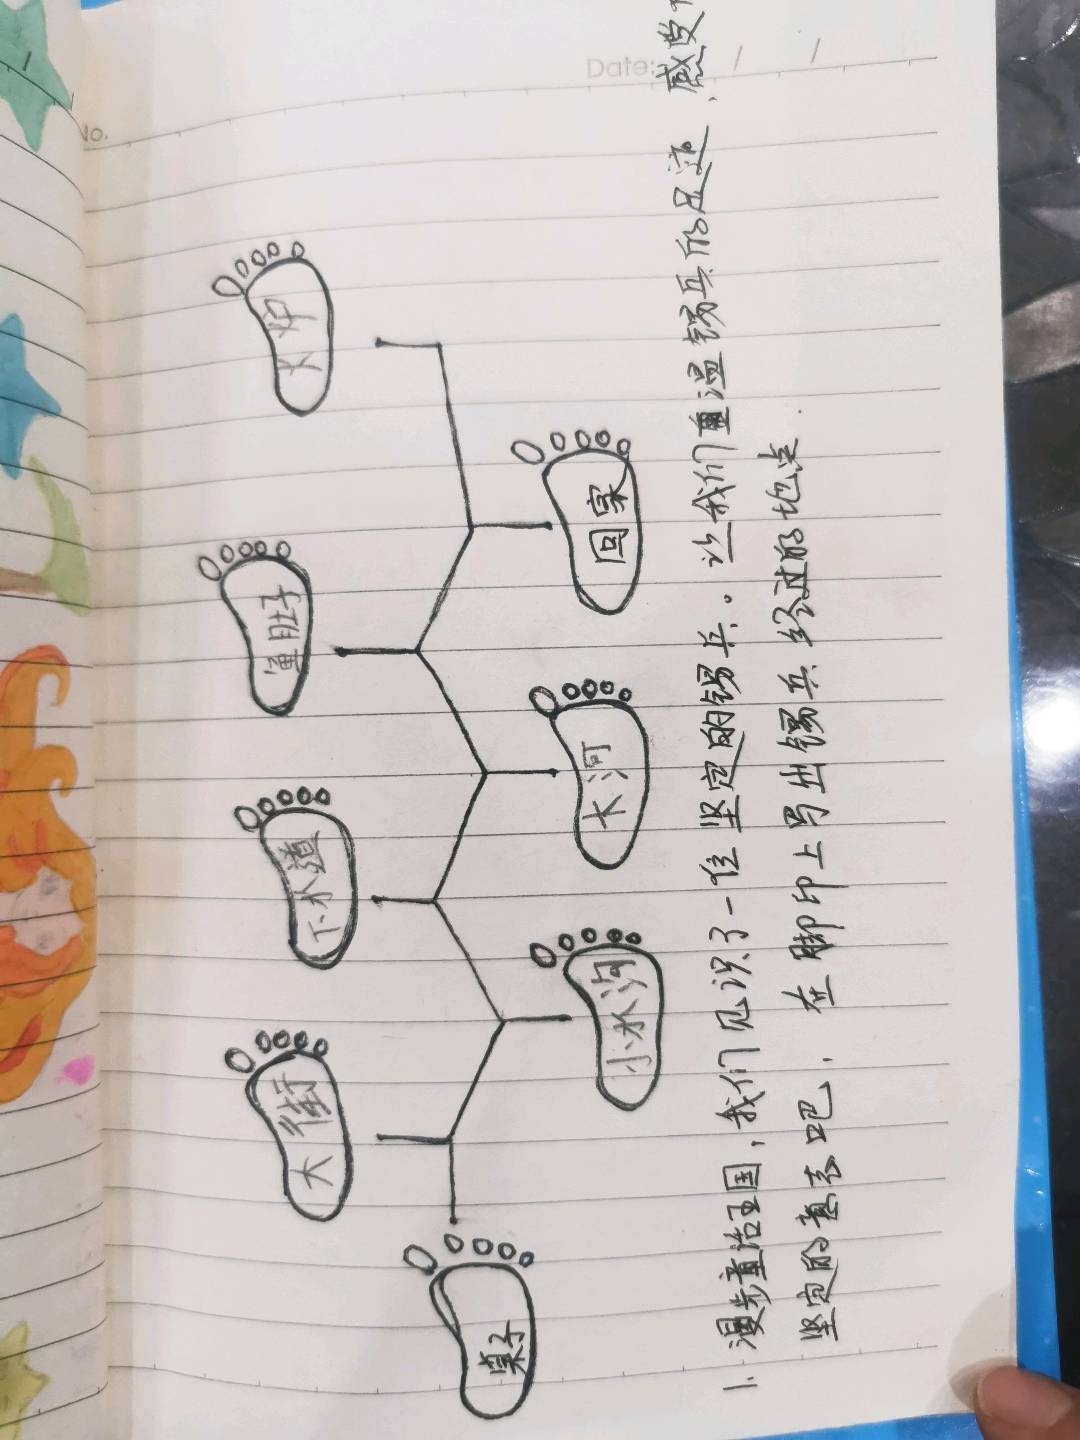 No.
Date:
火炉
回家
鱼肚子
长河
下水道
小水沟
大街
桌子
1. 漫步童话王国,我们见识了一位坚定的锡兵。让我们重温锡兵的足迹、感受
坚定的意志吧. 在脚印上写出锡兵经过的地点.